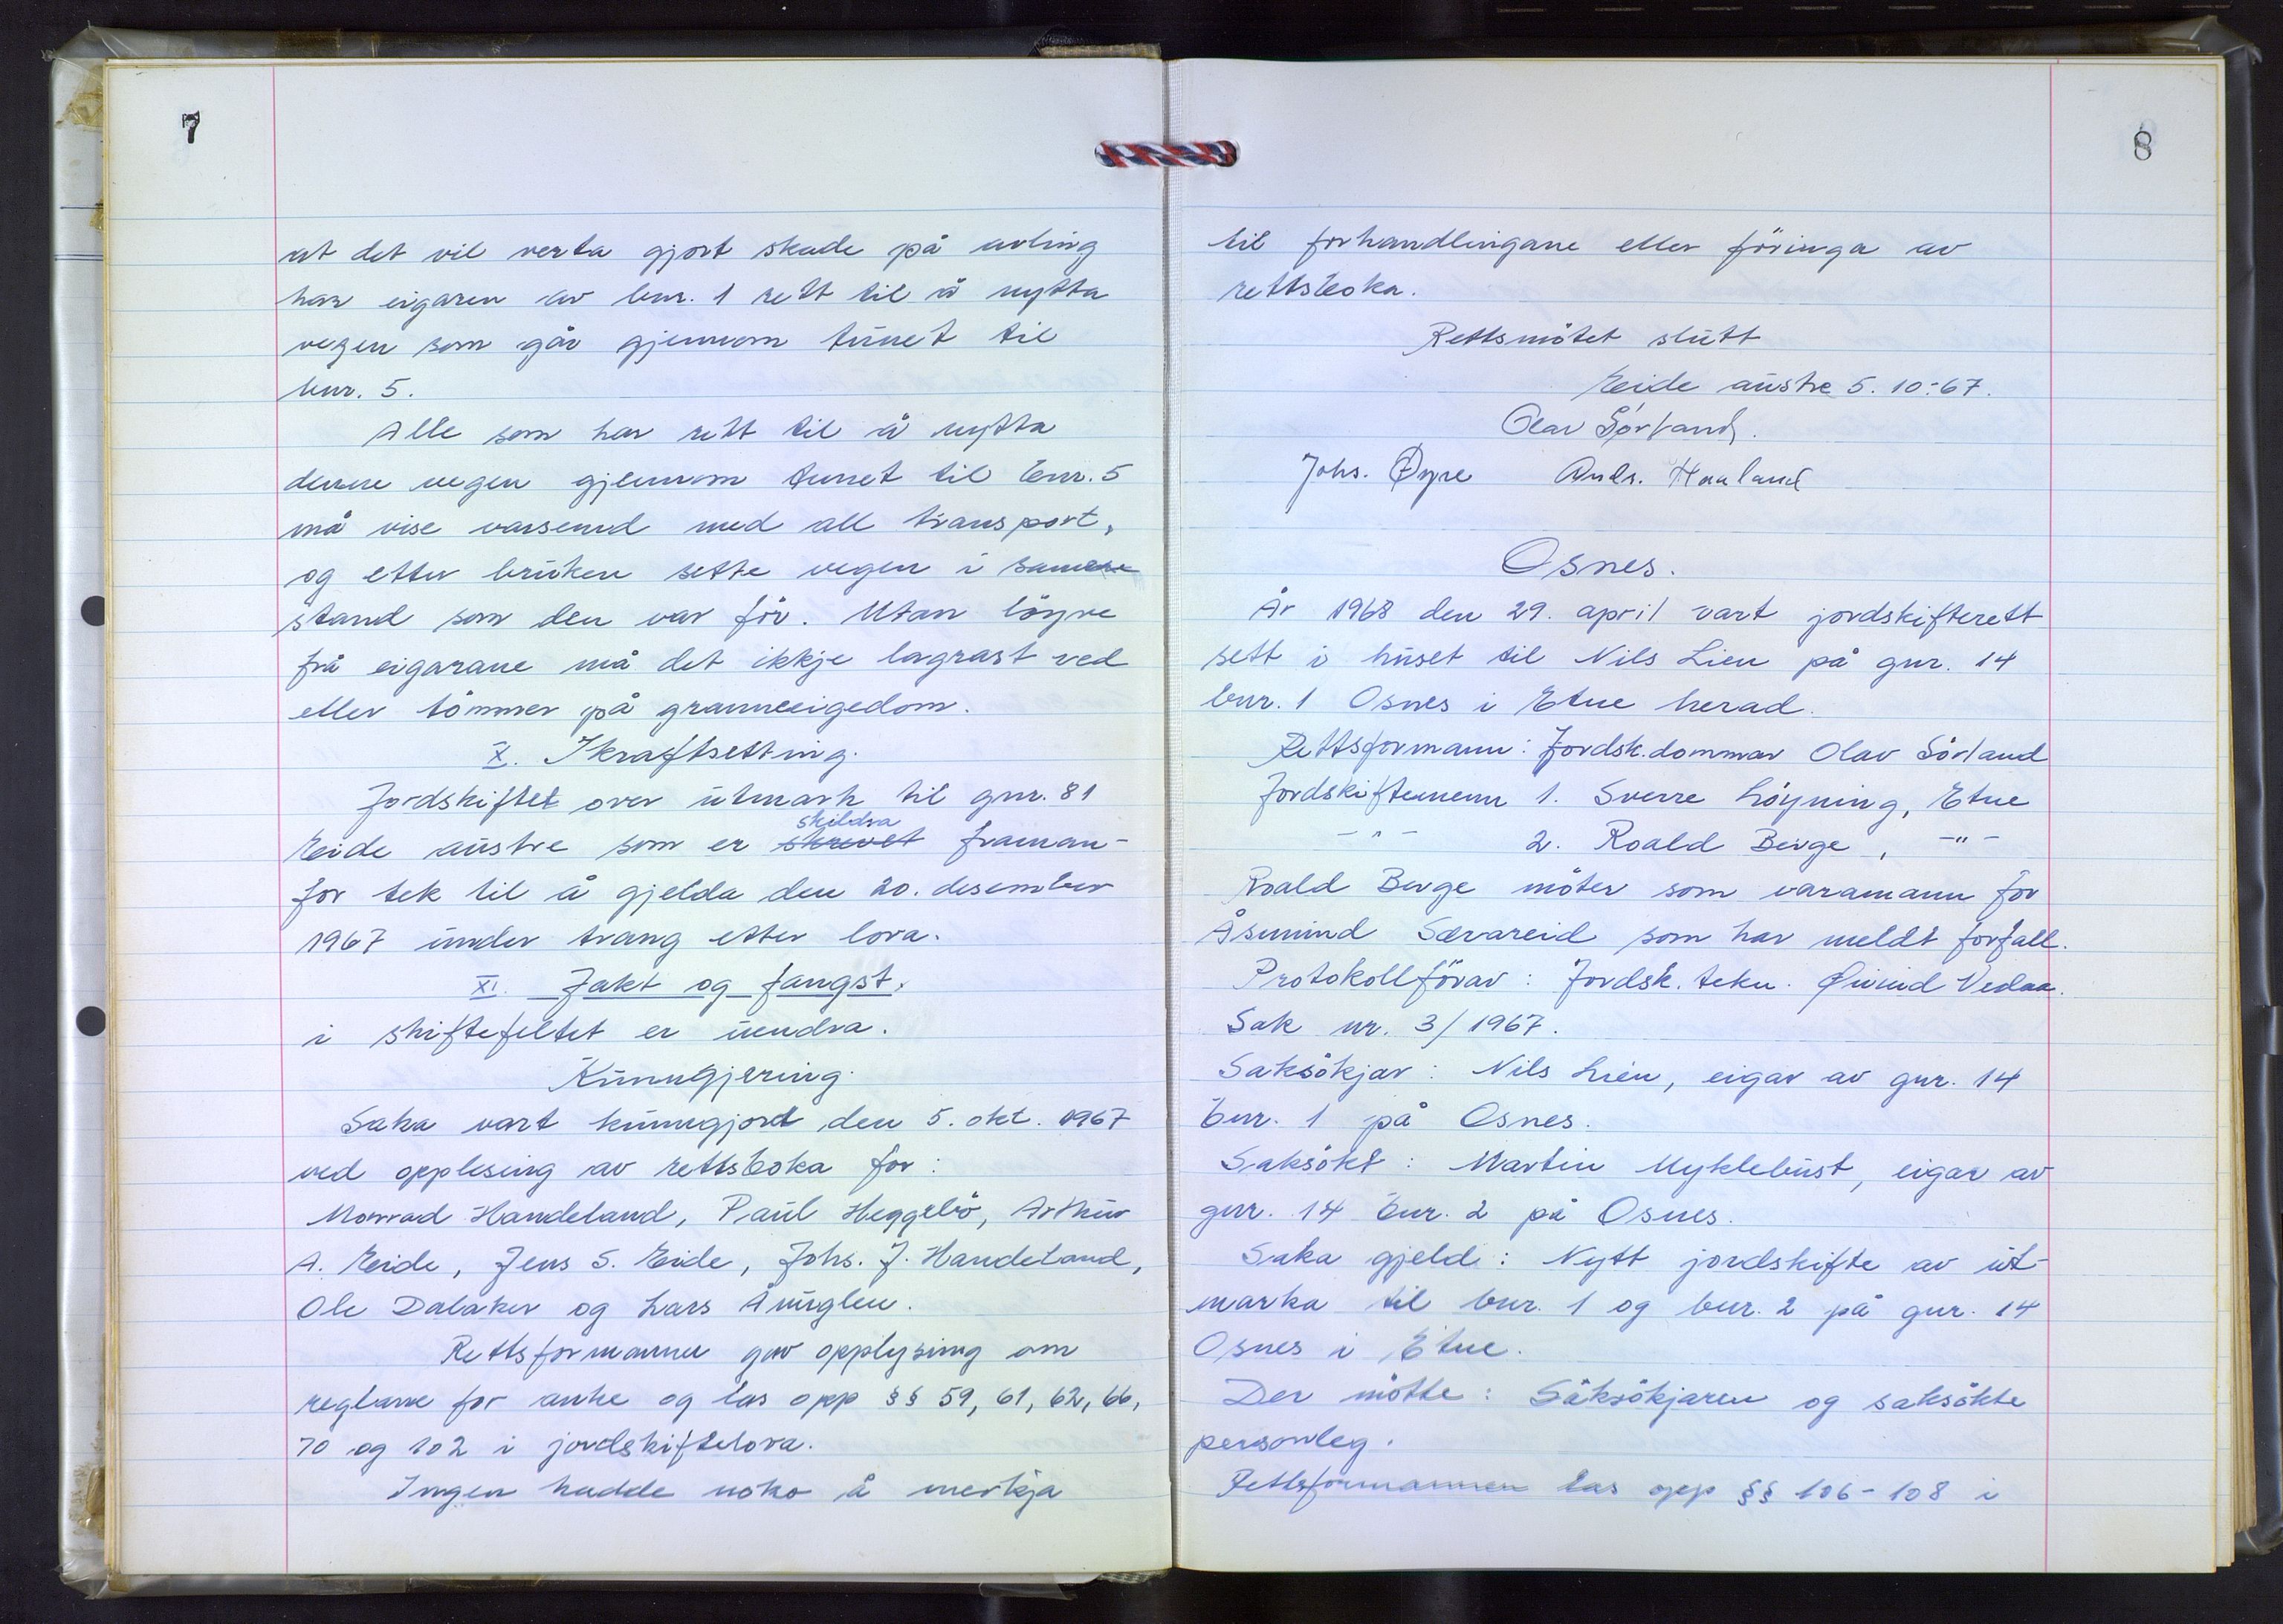 7
at det vil verta gjort skade på avling
har eigaren av bnr. 1 rett til å nytta
vegen som går gjennom tunet til
bnr. 5.
Alle som har rett til å nytta
denne vegen gjennom tunet til bnr. 5
må vise varsemd med all transport,
og etter bruken sette vegen i samme
stand som den var för. Utan löyve
frå eigarane må det ikkje lagrast ved
eller tömmer på granneeigedom.
X. Ikraftsetting.
Jordskiftet over utmark til gnr. 81
skildra
Eide austre som er skrevet framan-
for tek til å gjelda den 20. desember
1967 under tvang etter lova.
XI. Jakt og fangst.
i skiftefeltet er uendra.
Kunngjering.
Saka vart kunngjort den 5. okt. 1967
ved opplesing av rettsboka for:
Monrad Handeland, Paul Heggebö, Arthur
A. Eide, Jens S. Eide, Johs. J. Handeland,
Ole Dalaker og Lars Ånuglen.
Rettsformannen gav opplysing om
reglane for anke og las opp §§ 59, 61, 62, 66,
70 og 102 i jordskiftelova.
Ingen hadde noko å merkja
8
til forhandlingane eller föringa av
rettsboka.
Rettsmötet slutt
Eide austre 5. 10.-67.
Olav Sörland.
Johs. Øyre Ands. Haaland
Osnes.
År 1968 den 29. april vart jordskifterett
sett i huset til Nils Lien på gnr. 14
bnr. 1 Osnes i Etne herad.
Rettsformann: Jordsk.dommar Olav Sörland
Jordskiftemenn 1. Sverre Löyning, Etne
- " - 2. Roald Berge, - " -
Roald Berge möter som varamann for
Åsmund Særvareid som har meldt forfall.
Protokollförar: Jordsk. tekn. Øivind Vedaa.
Sak nr. 3/1967.
Saksökjar: Nils Lien, eigar av gnr. 14
bnr. 1 på Osnes.
Saksökt: Martin Myklebust, eigar av
gnr. 14 bnr. 2 på Osnes.
Saka gjeld: Nytt jordskifte av ut-
marka til bnr. 1 og bnr. 2 på gnr. 14
Osnes i Etne.
Der mötte: Saksökjaren og saksökte
personleg.
Rettsformannen las opp §§ 106-108 i